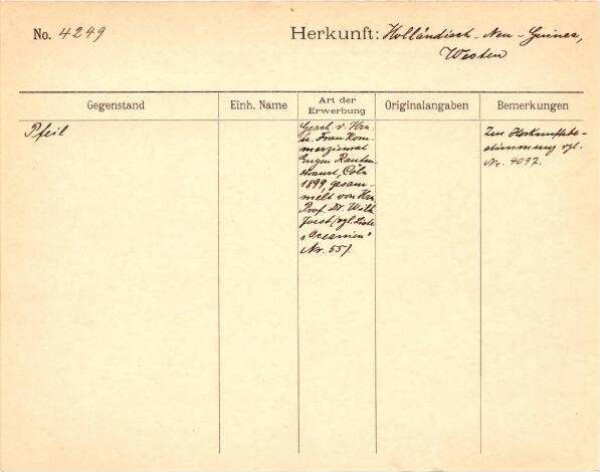 No. 4249
Herkunft: Holländisch-Neu-Guinea,
Westen
Gegenstand
Einh. Name
Art der
Erwerbung
Originalangaben
Bemerkungen
Pfeil
Gesch. v. Hrn
u. Frau Kom-
merzienrat
Eugen Rauten-
strauch, Cöln
1899, gesam-
melt von Hrn
Prof. Dr. Wilh.
Joest (vgl. Liste
„Oceanien"
Nr. 55).
Zur Herkunftsbe-
stimmung vgl.
Nr. 4092.